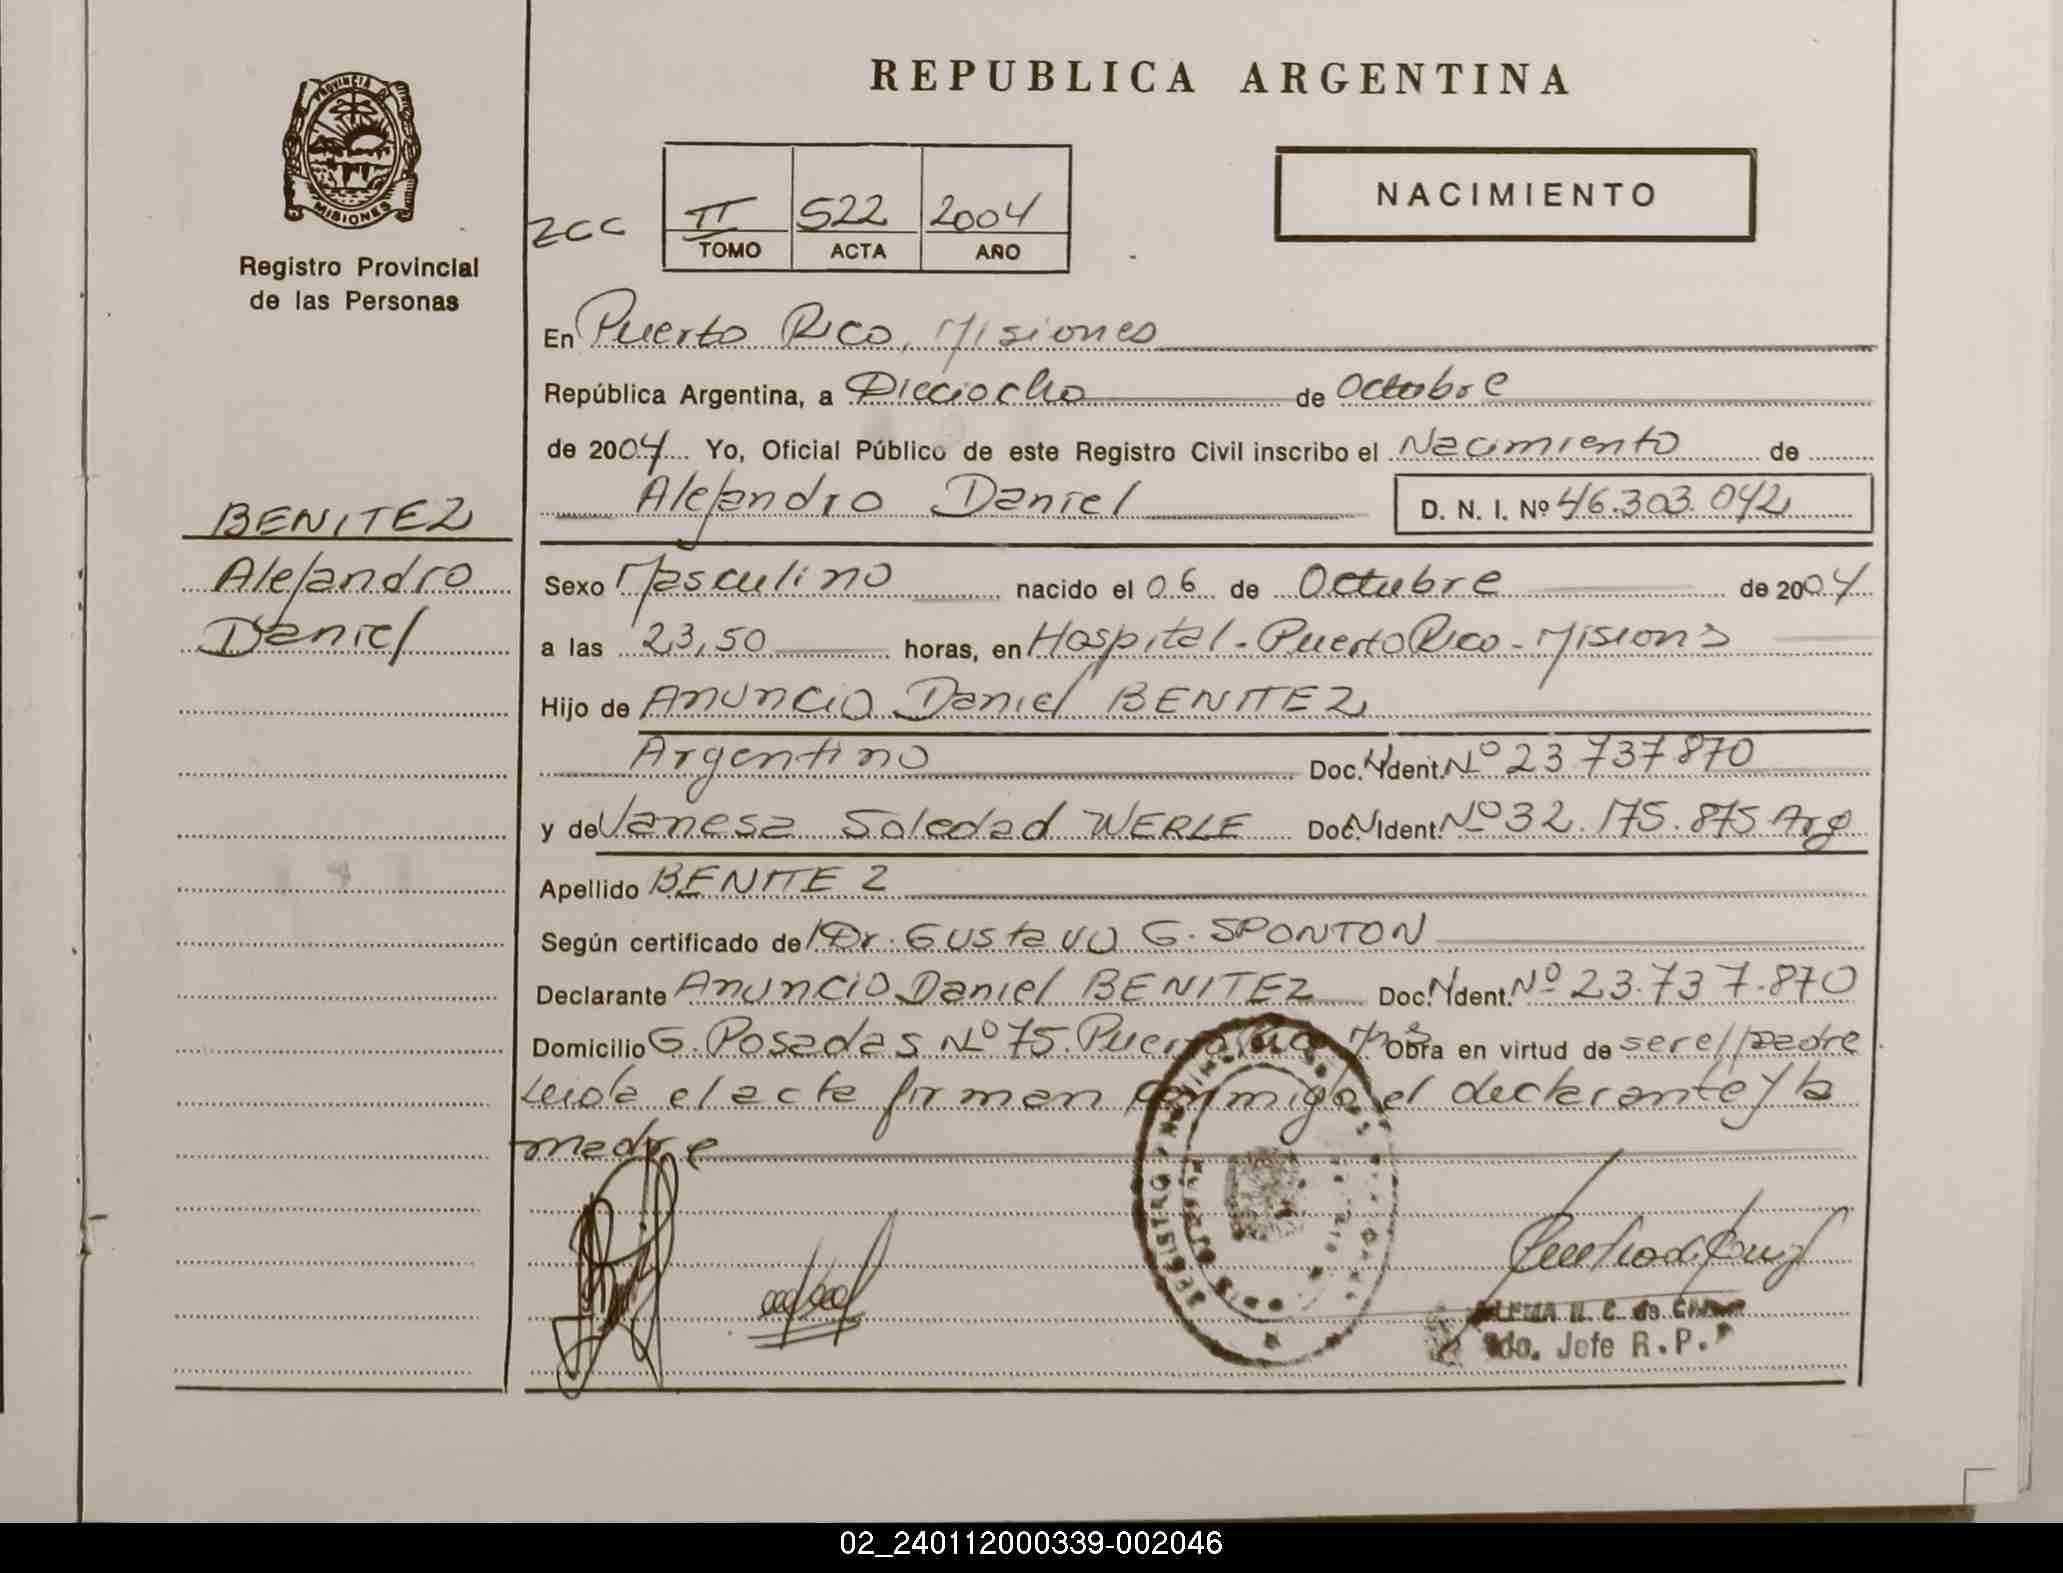 REPUBLICA ARGENTINA
PROVINCIA DE
MISIONES
Registro Provincial
de las Personas
NACIMIENTO
2CC
II 522 2004
TOMO ACTA AÑO
En Puerto Rico, Misiones
República Argentina, a Dieciocho de Octubre
de 2004 Yo, Oficial Público de este Registro Civil inscribo el Nacimiento de
Alejandro Daniel D. N. I. Nº 46.303.042
BENITEZ
Alejandro
Daniel
Sexo Masculino nacido el 06 de Octubre de 2004
a las 23,50 horas, en Hospital - Puerto Rico - Misions
Hijo de Anuncio Daniel BENITEZ
Argentino Doc. Ident. Nº 23 737 870
y de Vanesa Soledad WERLE Doc. Ident. Nº 32.175.875 Arg
Apellido BENITEZ
Según certificado del Dr. Gustavo G. SPONTON
Declarante Anuncio Daniel BENITEZ Doc. Ident. Nº 23.737.870
Domicilio G. Posadas Nº 75. Puerto Rico Mnes Obra en virtud de ser el padre
Leida el acta firman conmigo el declarante y la
madre
REGISTRO
N. C. de
Jefe R.P.
02_240112000339-002046